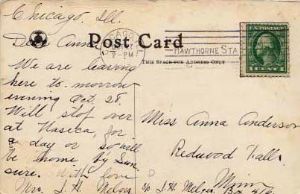 Chicago, Ill.
Dear Anna
Post Card
HAWTHORNE STA
THIS SPACE FOR ADDRESS ONLY
We are leaving
here to-morrow
evening Oct 28.
Will stop over
at Waseca, for
a day or so will
be home by Sun
sure. With love
Mrs. J. H.
Miss Anna Anderson
Redwood Falls
Minn